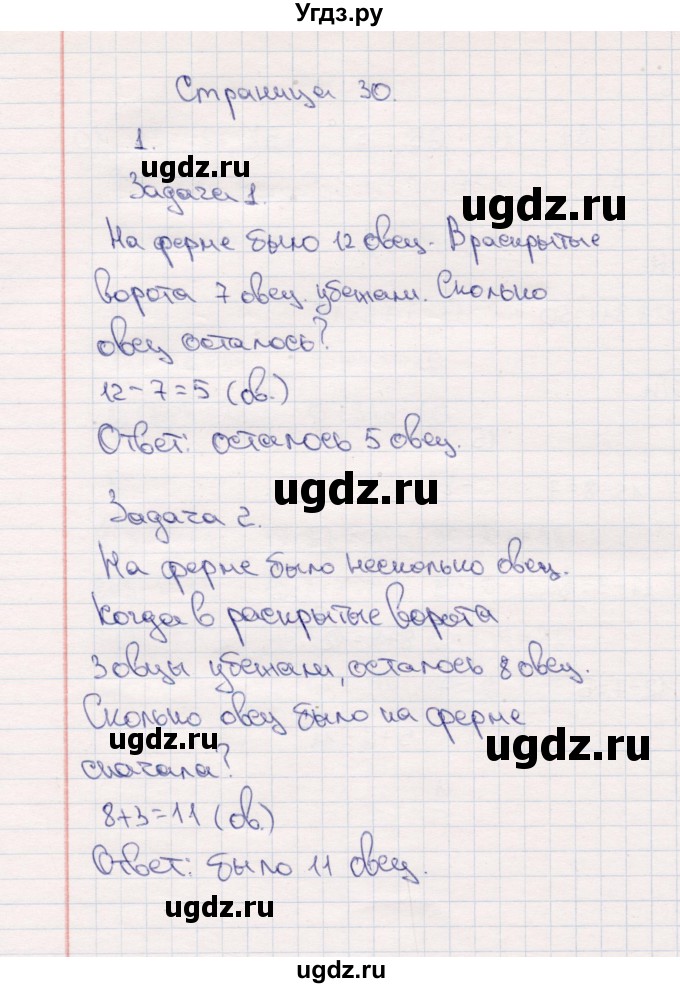 Угдз.ру
Страница 30.
1.
ugdz.ru
Задача 1.
ugdz.ru
На ферме было 12 овец. В раскрытые
ворота 7 овец убежали. Сколько
овец осталось?
12-7=5 (ов.)
Ответ: осталось 5 овец.
ugdz.ru
Задача 2.
На ферме было несколько овец.
Когда в раскрытые ворота
3 овцы убежали, осталось 8 овец.
Сколько овец было на ферме
ugdz.ru
ugdz.ru
сначала?
8+3=11 (ов.)
Ответ: было 11 овец.
ugdz.ru
ugdz.ru